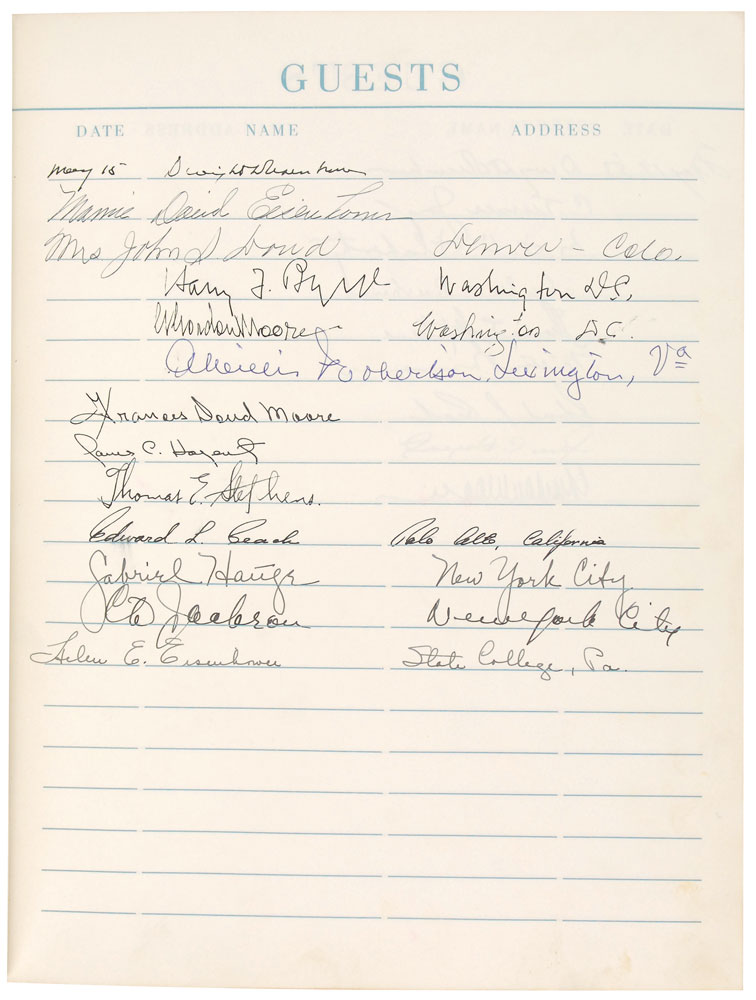 GUESTS
DATE NAME ADDRESS
May 15 Dwight D Eisenhower
Mamie Doud Eisenhower
Mrs John S. Doud Denver - Colo.
Harry F. Byrd Washington D.C.
Gordon Moore Washington D.C.
A Willis Robertson, Lexington, Va
Frances Doud Moore
James C. Hagerty
Thomas E. Stephens.
Edward L. Beach Palo Alto, California
Gabriel Hauge New York City
C D Jackson New York City
Helen E. Eisenhower State College, Pa.